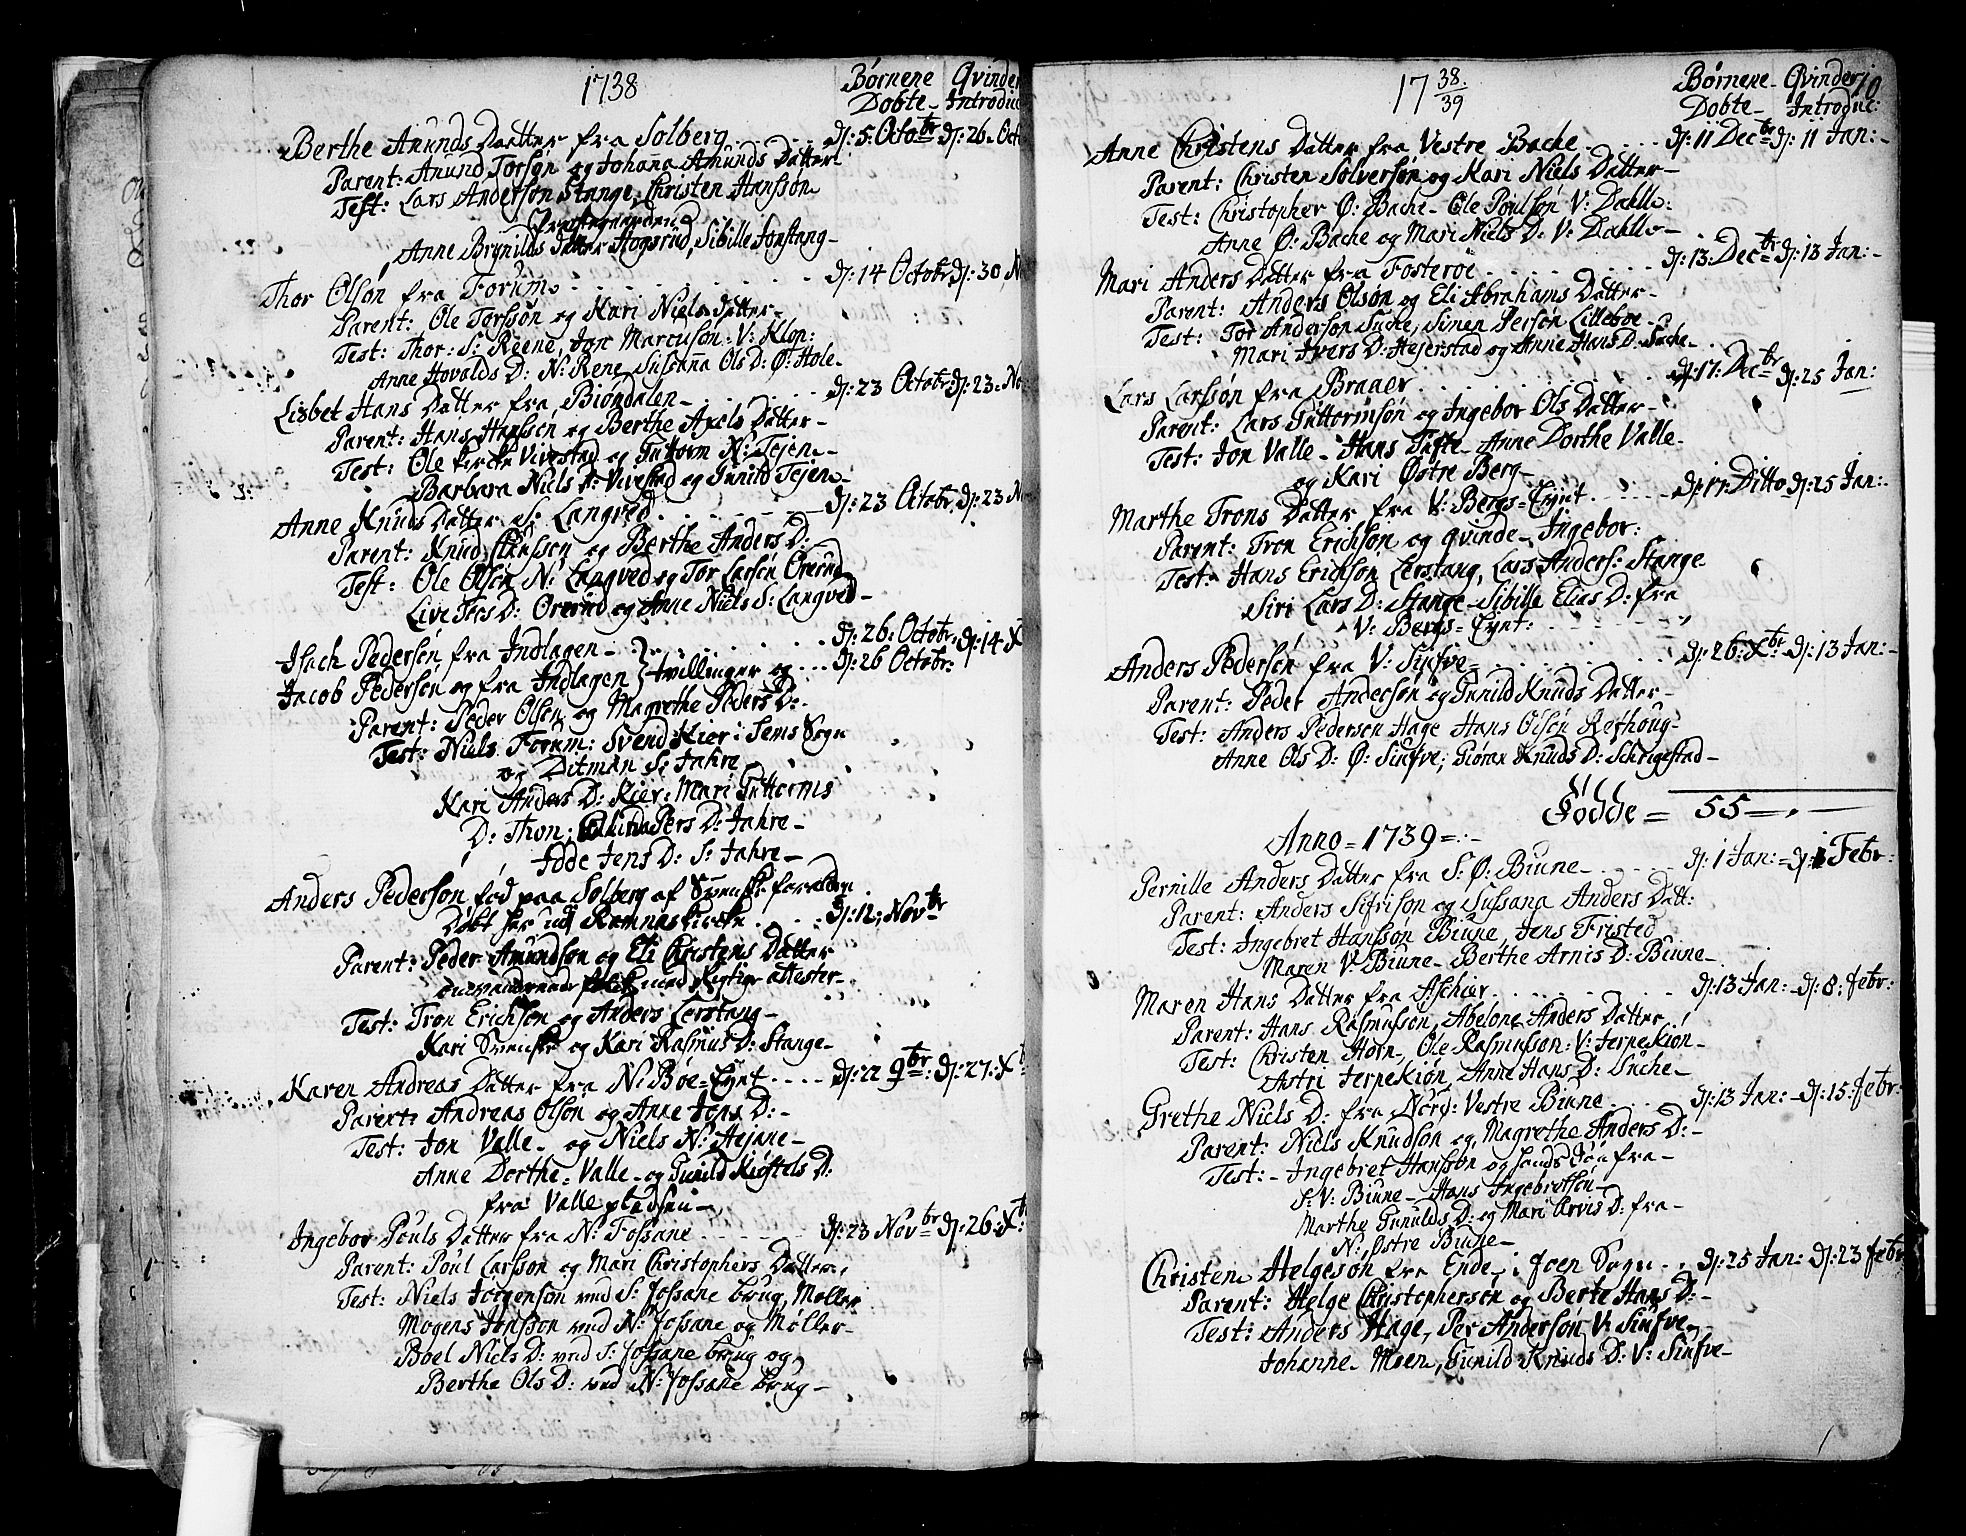 1738
Børnene Qvinder
Døbte- Introduc
Berthe Amunds Datter fra Solberg ... dj: 5 Octobr dj: 26. Oct
Parent: Amund Torsøn og Johana Amunds Datter
Test: Lars Anderson Stange, Christen Hanssøn
Prestegaarden
Anne Brynilds datter Hogsrud, Sibille Forstang-
Thor Olsøn fra Forum. ... dj: 14 Octobr dj: 30, N
Parent: Ole Torssøn og Kari Niels datter-
Test: Thor: S: Reene, Jon Marcuson: V: Klop:
Anne Hovalds D: N: Rene, Sussana Ols D: Ø: Hole-
Lisbet Hans Datter fra Biøndalen- ... dj: 23 Octobr dj: 23. No
Parent: Hans Hanssen og Berthe Axels Datter-
Test: Ole kircke Vivestad og Guttorm N: Tejen-
Barbara Niels D: Vivestad og Gunild Tejen-
Anne Knuds Datter S: Langved ... dj: 23 Octobr dj: 23 No
Parent: Knud Hanssøn og Berthe Anders D:
Test: Ole Olsøn N: Langved og Tor Larsøn Orerud
Live Tors D: Orerud og Anne Niels S: Langved-
Isach Pedersøn fra Indlagen- ... dj: 26: Octobr: dj: 14 X
Jacob Pedersøn og fra Indlagen } tvillinger og ... dj: 26 Octobr:
Parent: Peder Olsøn og Magrethe Peders D:
Test: Niels Forum: Svend Kier i Sems Sogn
og Ditman S: Jahre
Kari Anders D: Kier: Mari Guttorms
D: Thon: Pers D: Jahre-
Idde Jens D: S: Jahre-
Anders Pedersøn fød paa Solberg af Svenske forældre
Døbt her ud Ramnes kirke ... dj: 12: Novbr
Parent: Peder Amundsøn og Eli Christens Datter
med Rigtige attester-
Test: Tron Erichsøn og Anders Lerstang-
Kari Svenske og Kari Rasmus D: Stange-
Karen Andreas Datter fra N: Bøe-Eynt .... dj: 22 9br: dj: 27: X
Parent: Andreas Olsøn og Anne Jons D:-
Test: Jon Valle- og Niels N: Hejane-
Anne Dorthe Valle- og Gunild Kiøstels D:
fra Valle pladsen-
Ingebor Pouls Datter fra N: Fossane ... dj: 23 Novbr dj: 26 X
Parent: Poul Larssøn og Mari Christophers Datter,
Test: Niels Jorgensøn ved S: Fossane brug, Møller
Mogens Jonssøn ved N: Fossane og Møller-
Boel Niels D: ved S: Fossane brug og
Berthe Ols D: ved N: Fossane brug-
17 38/39
Børnene- Qvinder 10
Døbte- Introduc:
Anne Christens Datter fra Vestre Bache. ... dj: 11 Decbr dj: 11 Jan:-
Parent: Christen Solversøn og Kari Niels Datter-
Test: Christopher Ø: Bache- Ole Poulsøn V: Dahl:
Anne Ø: Bache og Mari Niels D: V: Dahl-
Mari Anders Datter fra Fosterøe ... dj: 13: Decbr dj: 13 Jan:-
Parent: Anders Olsøn og Eli Abrahams Datter-
Test: Tor Andersøn Suche, Simen Persøn Lilleboe-
Mari Ivers D: Hejerstad og Anne Hans D: Suche-
Lars Larssøn fra Braaer ... dj: 17: Decbr dj: 25 Jan:
Parent: Lars Guttormsøn og Ingebor Ols Datter-
Test: Jon Valle- Hans Tufte- Anne Dorthe Valle-
og Kari Østre Berg-
Marthe Trons Datter fra V: Bergs-Eynt ... dj: 17: Ditto dj: 25 Jan:-
Parent: Tron Erichsøn og qvinde- Ingebor:
Test: Hans Erichsøn Lerstang, Lars Anders: Stange
Siri Lars D: Stange- Sibille Elias D: fra
V: Bergs-Eynt:
Anders Pedersøn fra V: Sinfve- ... dj: 26: Xbr: dj: 13 Jan:-
Parent: Peder Andersøn og Gunild Knuds Datter-
Test: Anders Pedersen Hage Hans Olsøn Refhoug-
Anne Ols D: Ø: Sinfve; Giøran Knuds D: Schrigestad-
Fødde = 55 =
Anno = 1739 =:-
Pernille Anders Datter fra S: Ø: Biune- ... dj: 1 Jan:= dj: 1 Febr:
Parent: Anders Sifrisøn og Sussana Anders Datt:
Test: Ingebret Hanssøn Biune, Jens Fristed
Maren V: Biune- Berthe Arnis D: Biune-
Maren Hans Datter fra Aschier ... dj: 13 Jan:- dj: 8: febr:
Parent: Hans Rasmussøn, Abelone Anders Datter
Test: Christen Horn-, Ole Rasmussøn: V: Jernekiøn-
Astri Jernekiøn, Anne Hans D: Suche-
Grethe Niels D: fra Nord: Vestre Biune ... dj: 13 Jan:- dj: 15: febr:
Parent: Niels Knudsøn og Magrethe Anders D:-
Test:- Ingebret Hanssøn og hands Søn fra-
S: V: Biune- Hans Ingebretsøn-
Marthe Gunulds D: og Mari Arvis D: fra-
N: Østre Biune-
Christen Helgesøn fra Ende- i foen Sogn .. dj: 25 Jan: dj: 23 febr
Parent: Helge Christophersøn og Berte Hans D:-
Test: Anders Hage, Per Andersøn V: Sinfve-
Johanne Moen, Gunild Knuds D: V: Sinfve-